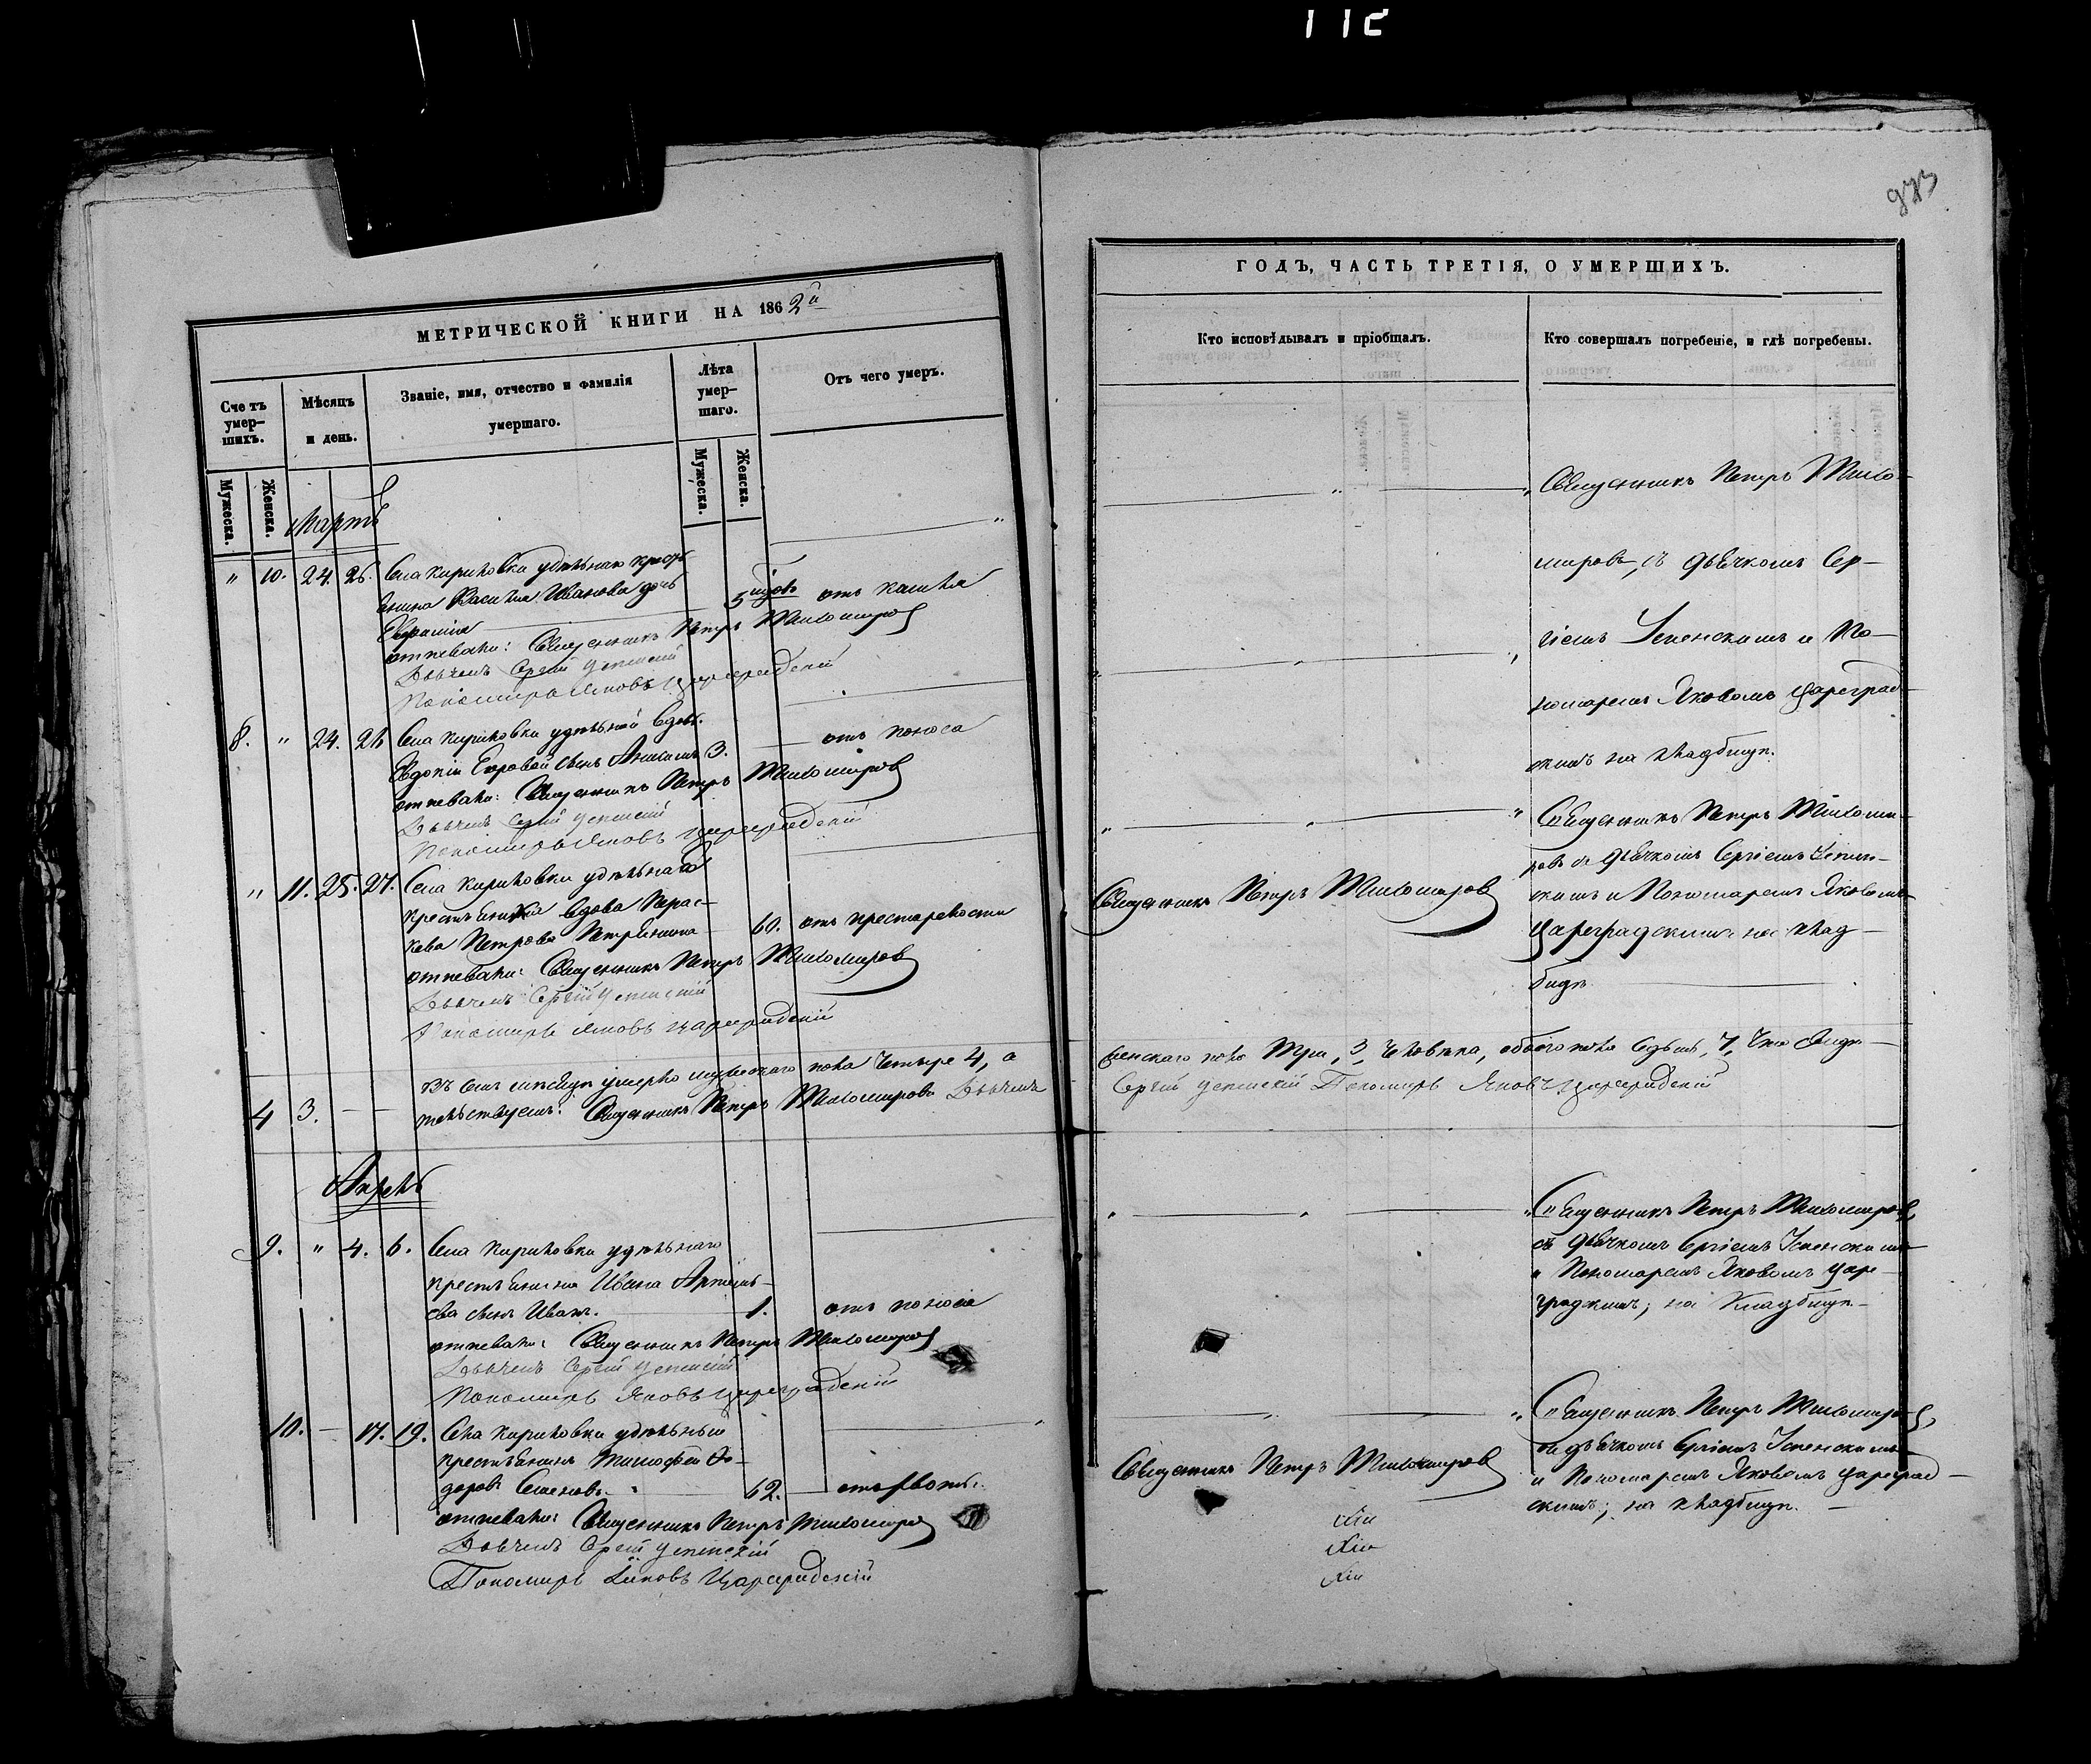 112
973
МЕТРИЧЕСКОЙ КНИГИ НА 1862й
Счетъ умер-
шихъ.
Мѣсяцъ
и день.
Званіе, имя, отчество и фамилія
умершаго.
Лѣта
умер-
шаго.
Отъ чего умеръ.
Мужеска.
Женска.
Мужеска.
Женска.
Мартъ
" 10. 24. 26. Села Кириловки удѣльнаго кресть
янина Василія Иванова дочь
5 отъ кашля
Отпевали: Священникъ Петръ Тихомировъ
Дьячекъ Сергій Успенскій
Пономарь Яковъ Цареградскій
8. " 24. 26 Села Кириловки удѣльной вдовы
Евдокіи Егоровой сынъ 3. отъ поноса
отпевали: Священникъ Петръ Тихомировъ
Дьячекъ Сергій Успенскій
Пономарь Яковъ Цареградскій
" 11. 25. 27. Села Кириловки удѣльная
крестьянка вдова Парас-
кева Петрова 60. отъ престарелости
отпевали: Священникъ Петръ Тихомировъ
Дьячекъ Сергій Успенскій
Пономарь Яковъ Цареградскій
Въ семъ мѣсяцѣ умерло мужескаго пола четыре 4, а
4 3. — — тельствуемъ: Священникъ Петръ Тихомировъ Дьячекъ
Апрель
9. " 4. 6. Села Кириловки удѣльнаго
крестьянина Ивана Артемь-
ева сынъ Иванъ. 1. отъ поноса
отпевали: Священникъ Петръ Тихомировъ
Дьячекъ Сергій Успенскій
Пономарь Яковъ Цареградскій
10. — 17. 19. Села Кириловки удѣльный
крестьянинъ Тимофей Фе-
доровъ Семеновъ. 62.
отпевали: Священникъ Петръ Тихомировъ
Дьячекъ Сергій Успенскій
Пономарь Яковъ Цареградскій
ГОДЪ, ЧАСТЬ ТРЕТІЯ, О УМЕРШИХЪ.
Кто исповѣдывалъ и пріобщалъ.
Кто совершалъ погребеніе, и гдѣ погребены.
Священникъ Петръ Тихо-
мировъ, съ дьячкомъ Сер-
гіемъ Успенскимъ и По-
номаремъ Яковомъ Цареград-
скимъ на кладбищѣ.
Священникъ Петръ Тихоми-
ровъ съ дьячкомъ Сергіемъ Успен-
Священникъ Петръ Тихомировъ
скимъ и Пономаремъ Яковомъ
Цареградскимъ на клад-
бищѣ
женскаго пола три, 3, человѣка, обоего пола седьмъ, 7, что свидѣ-
Сергій Успенскій Пономарь Яковъ Цареградскій
Священникъ Петръ Тихомировъ,
съ дьячкомъ Сергіемъ Успенскимъ
и Пономаремъ Яковомъ Царе-
градскимъ; на кладбищѣ —
Священникъ Петръ Тихомировъ,
съ дьячкомъ Сергіемъ Успенскимъ
Священникъ Петръ Тихомировъ
и Пономаремъ Яковомъ Цареград-
скимъ; на кладбищѣ. —